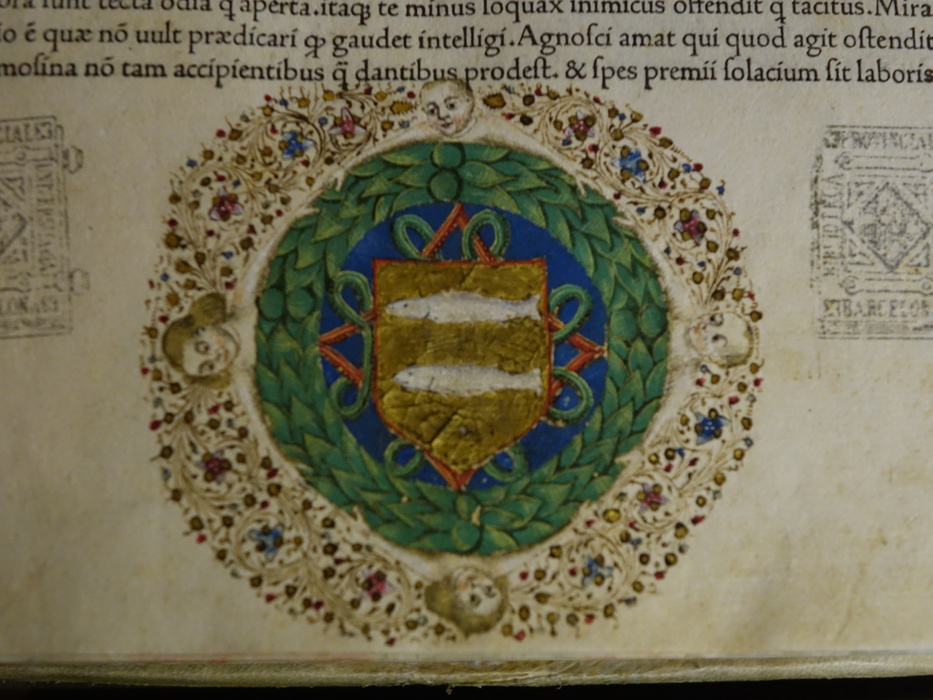 ſunt tecta odia q̃ aperta.itaqꝫ te minus loquax inimicus offendit q̃ tacitus.Mira
ē quæ nō uult prædicari ꝙ gaudet intelligi.Agnoſci amat qui quod agit oſtendit
moſina nō tam accipientibus q̃ dantibus prodeſt. & ſpes premii ſolacium ſit laboris